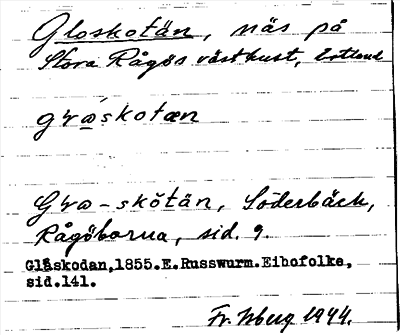 Gloskotän, näs på
Stora Rågös västkust, Estland
gra̱skotæn
Gra-skŏtän, Söderbäck,
Rågöborna, sid. 9.
Glåskodan,1855.E.Russwurm.Eibofolke,
sid.141.
Fr. Isberg 1944.